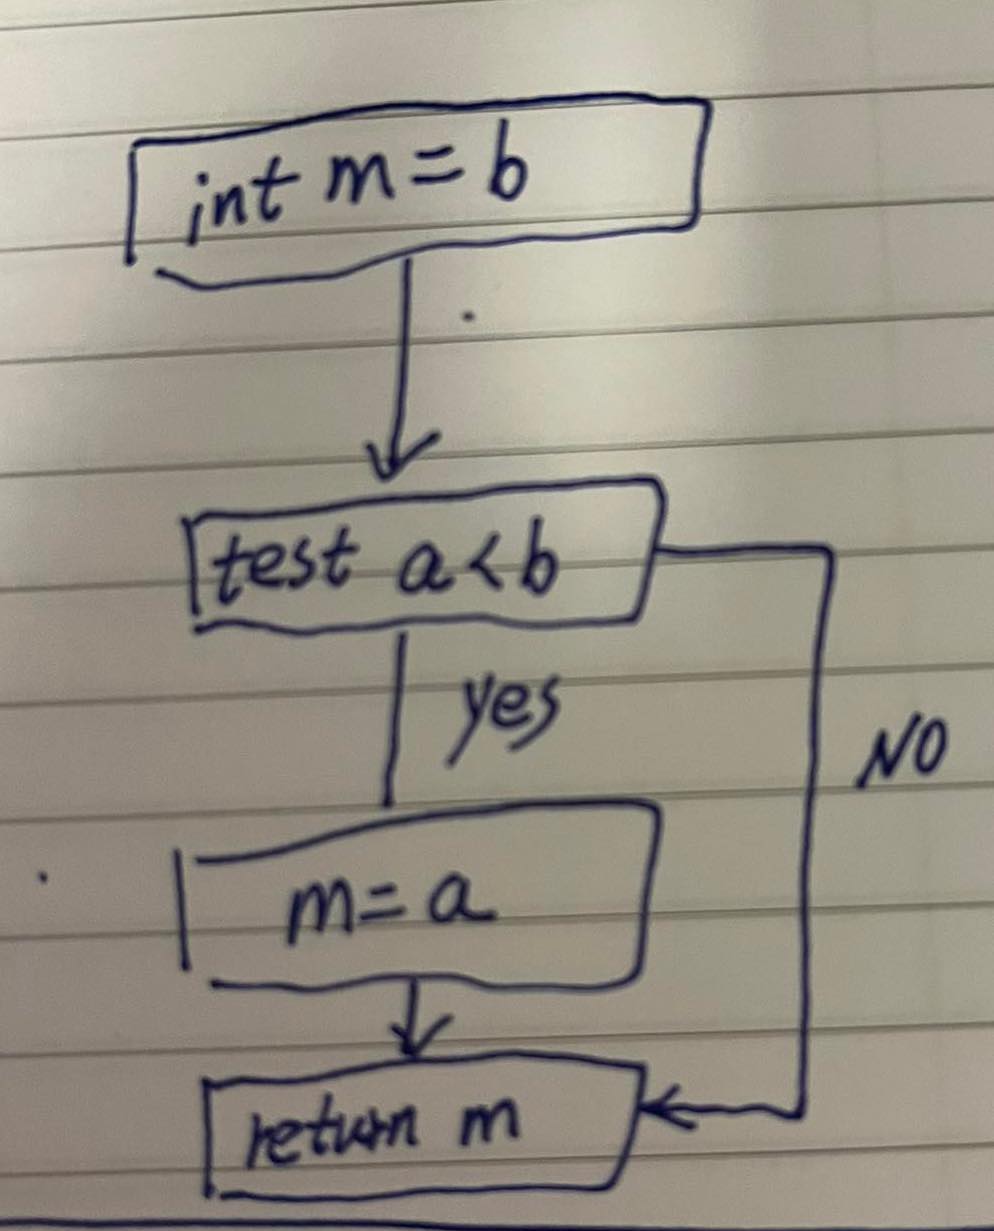 int m = b
test a < b
yes
NO
m = a
return m